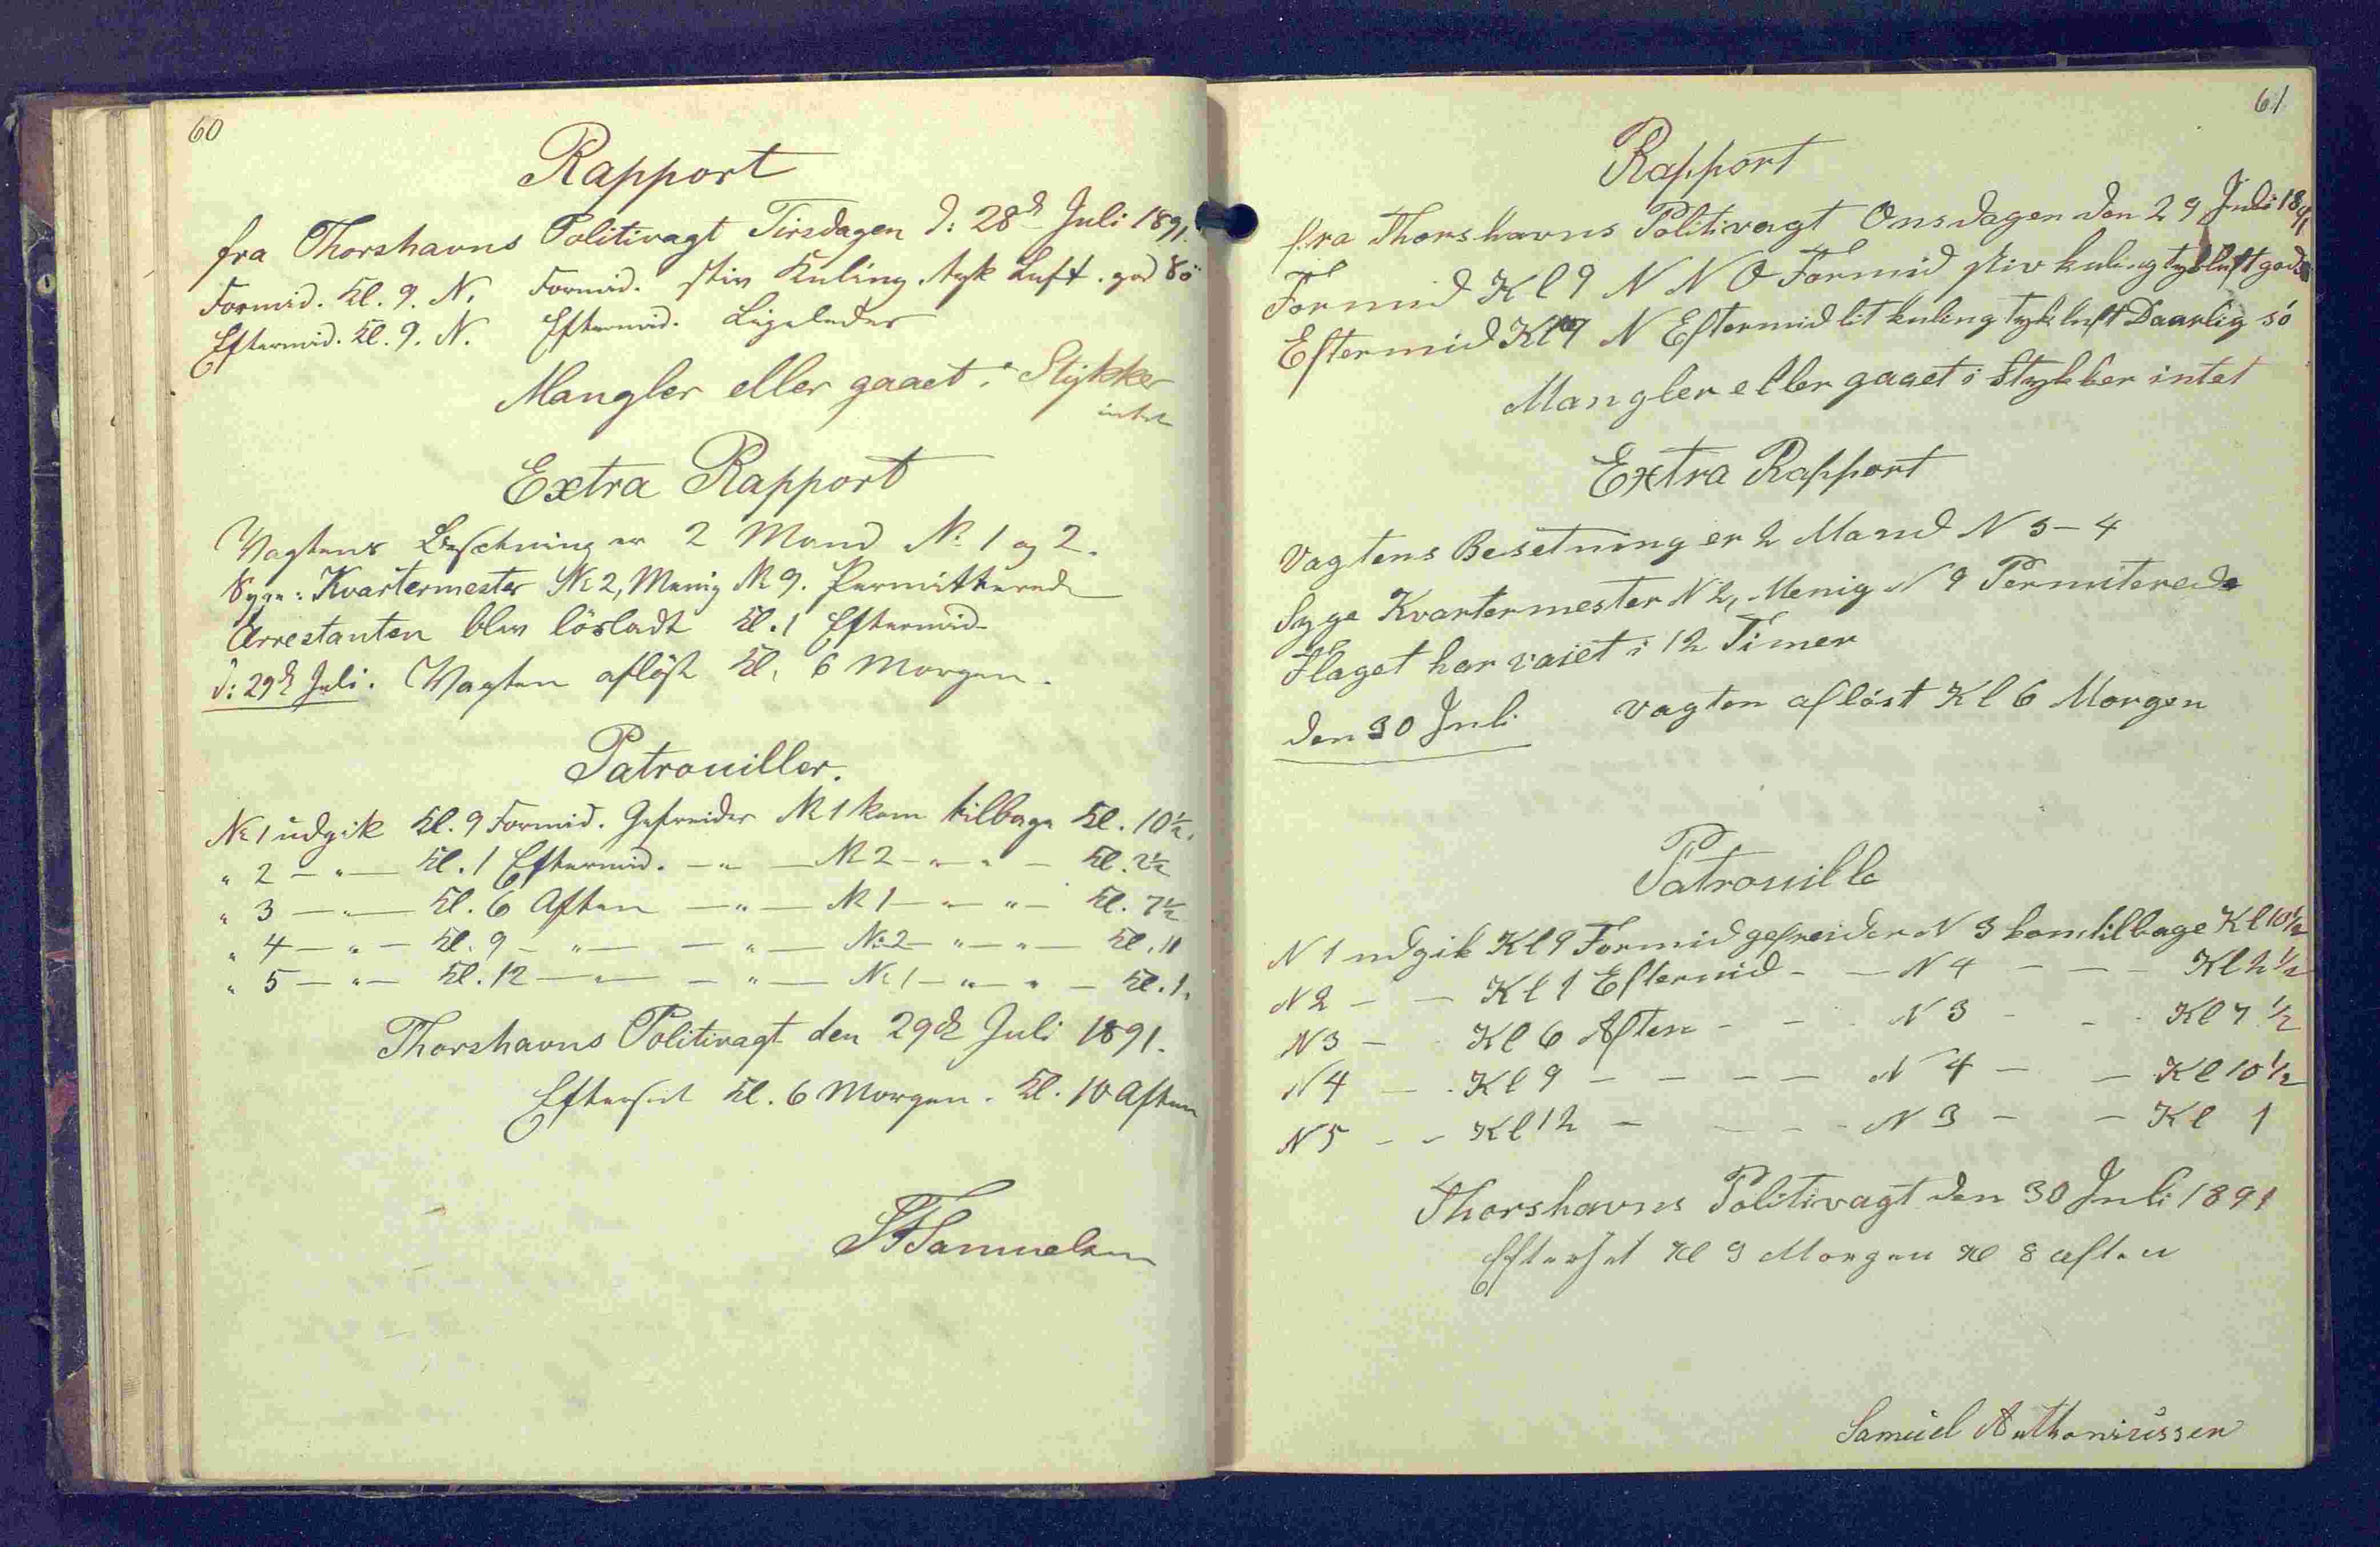 60
Rapport
fra Thorshavns Politivagt Tirsdagen d: 28d Juli 1891.
Formid. Kl. 9. N. Formid. stiv Kuling. tyk Luft. god Sö
Eftermid. Kl. 9. N. Eftermid. Ligeledes
Mangler eller gaaet i Stykker
intet
Extra Rapport
Vagtens Besætning er 2 Mand No 1 og 2.
Syge: Kvartermester No 2, Menig No 9. Permitterede
Arrestanten blev lösladt Kl. 1 Eftermid.
d: 29d Juli. Vagten aflöst Kl. 6 Morgen.
Patrouiller.
No 1 udgik Kl. 9 Formid. Gefreider No 1 kom tilbage Kl. 10½.
" 2 — " — Kl. 1 Eftermid. — " — No 2 — " — " — Kl. 2½
" 3 — " — Kl. 6 Aften — " — No 1 — " — " — Kl. 7½
" 4 — " — Kl. 9 — " — — " — No 2 — " — " — Kl. 11
" 5 — " — Kl. 12 — " — — " — No 1 — " — " — Kl. 1.
Thorshavns Politivagt den 29de Juli 1891.
Efterset Kl. 6 Morgen. Kl. 10 Aften
Samuelsen
61
Rapport
fra Thorshavns Politivagt Onsdagen den 29 Juli 1891
Formid Kl 9 N N O Formid stiv kuling tyk luft god
Eftermid Kl 9 N Eftermid lit kuling tyk luft Daarlig sö
Mangler eller gaaet i Stykker intet
Extra Rapport
Vagtens Besetning er 2 Mand N 3 - 4
Syge Kvartermester N 2, Menig N 9 Permiterede
Flaget har vaiet i 12 Timer
den 30 Juli vagten aflöst Kl 6 Morgen
Patrouille
N 1 udgik Kl 9 Formid gefreider N 3 kom tilbage Kl 10½
N 2 - - Kl 1 Eftermid - - N 4 - - - Kl 2½
N 3 - Kl 6 Aften - - N 3 - - Kl 7½
N 4 - - Kl 9 - - - - N 4 - - Kl 10½
N 5 - - Kl 12 - - - - N 3 - - Kl 1
Thorshavns Politivagt den 30 Juli 1891
Efterset Kl 9 Morgen Kl 8 aften
Samúel Anthoniússen